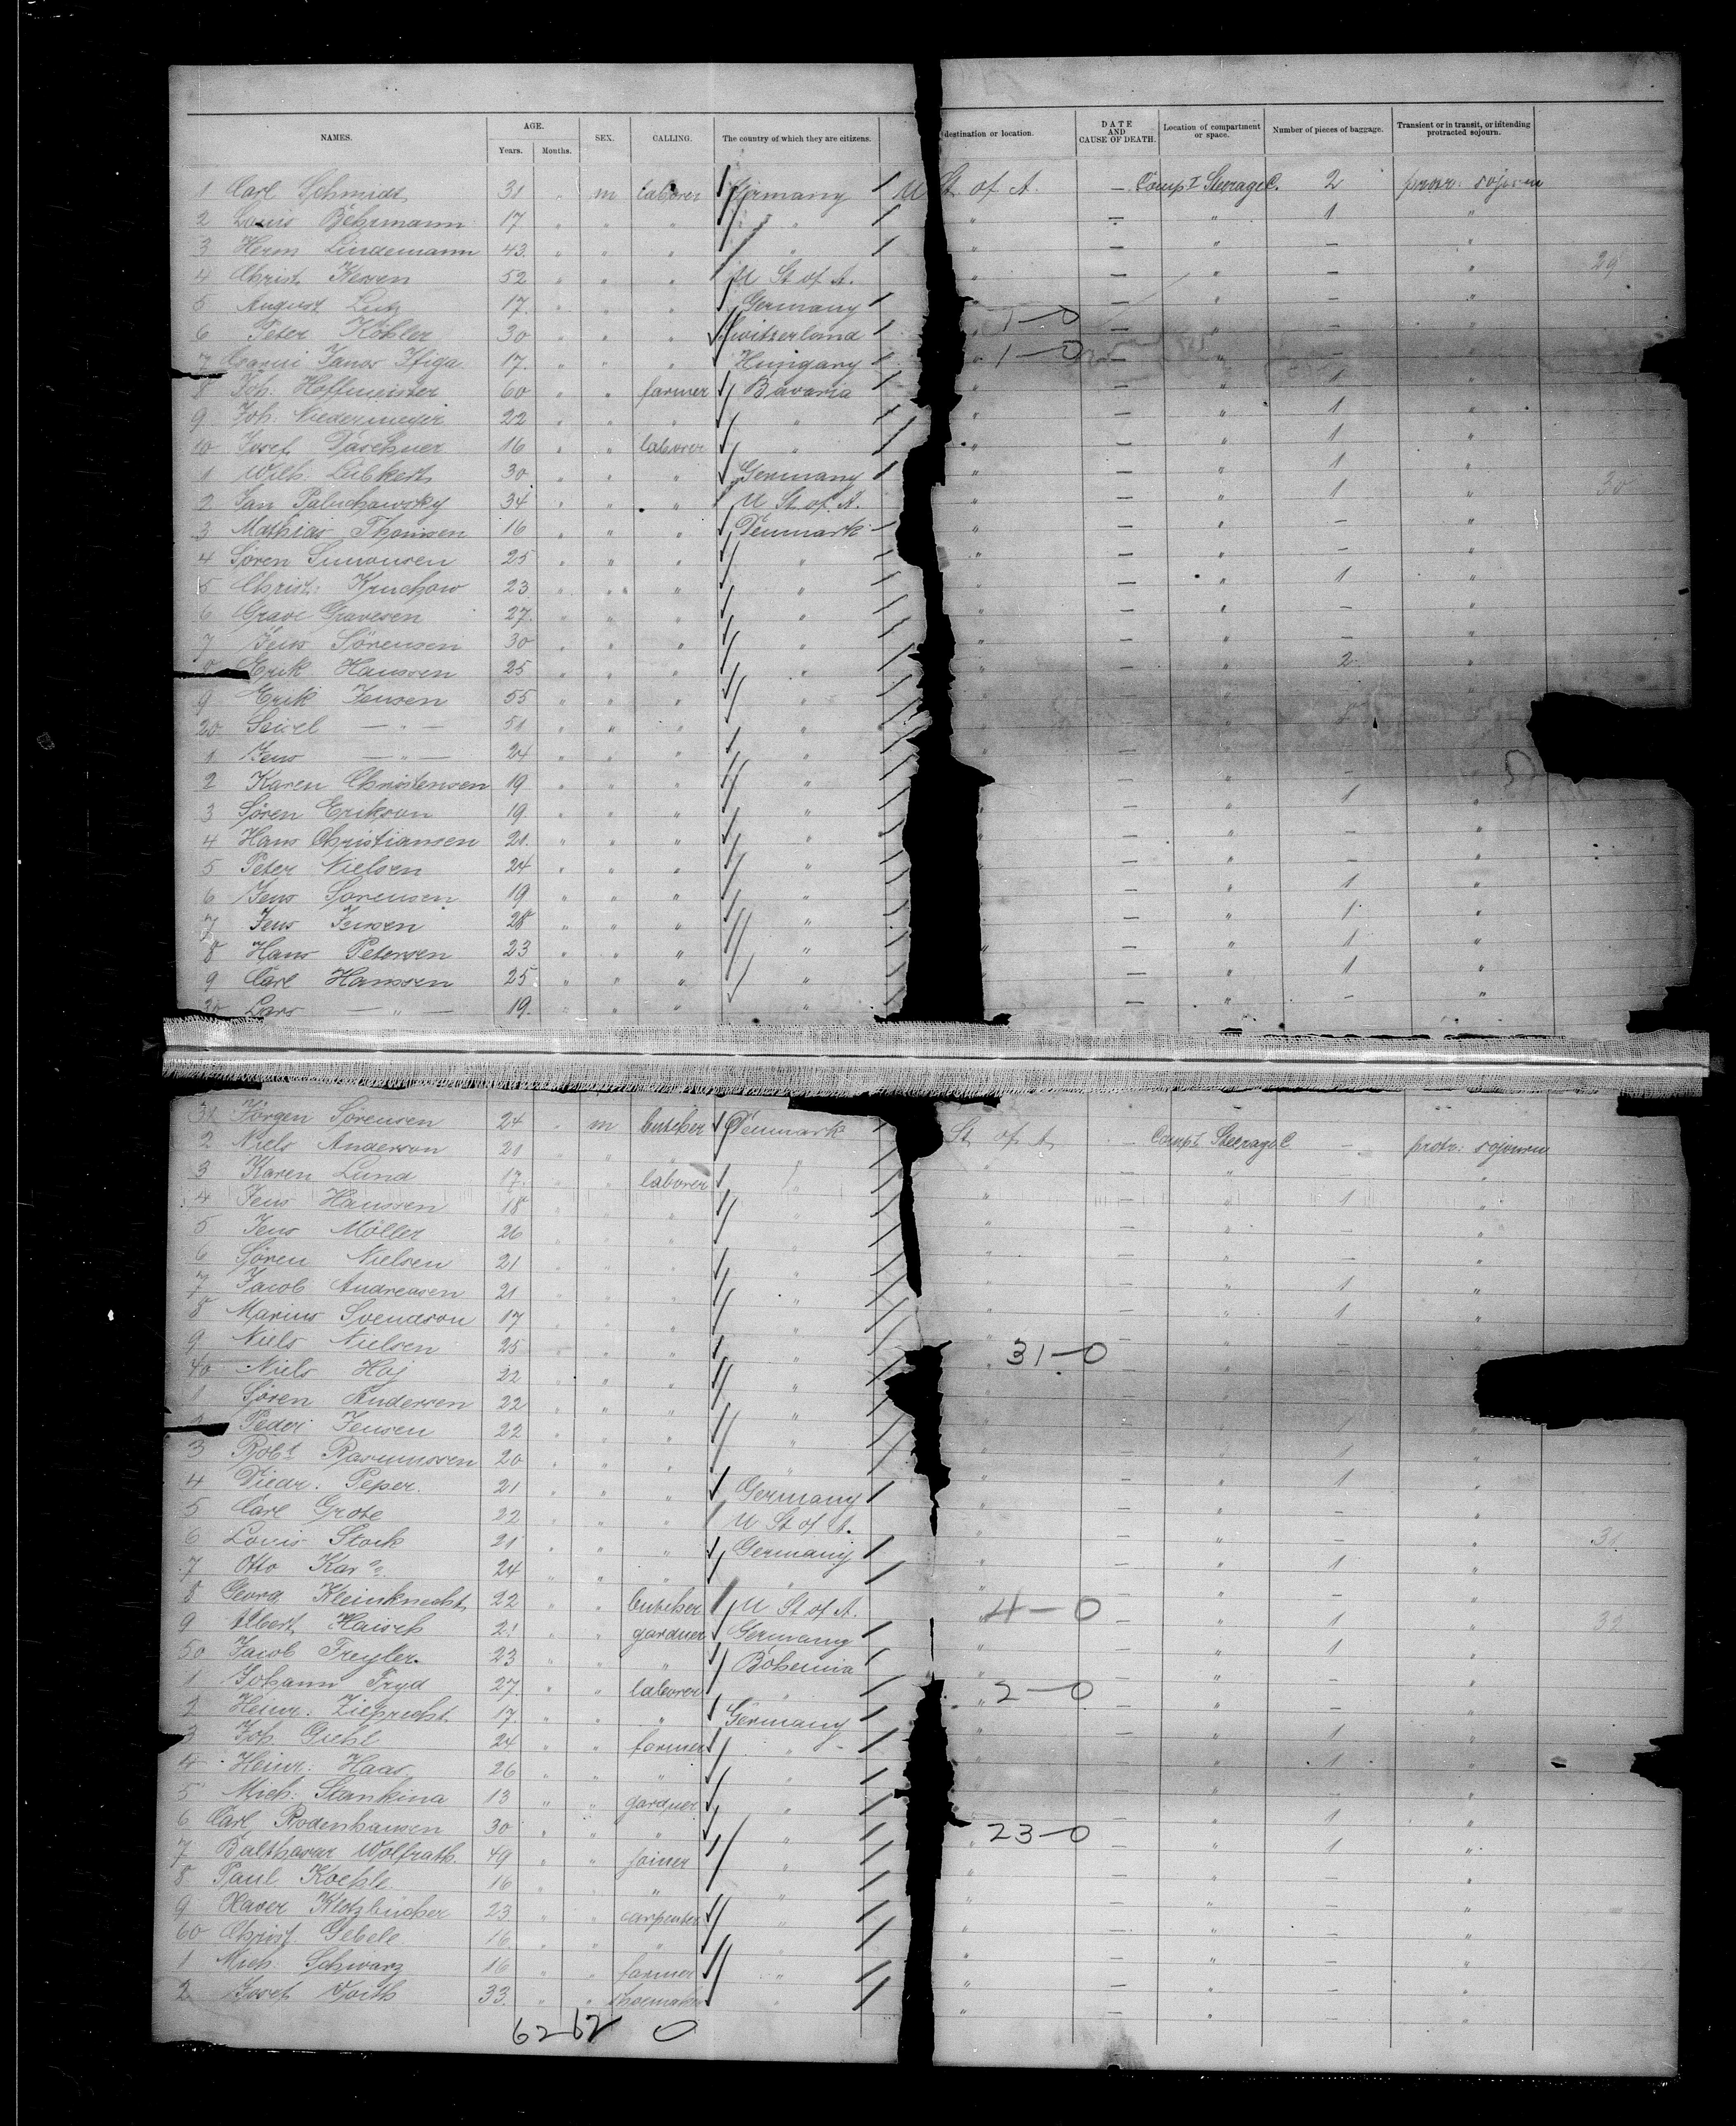 NAMES. AGE. SEX. CALLING. The country of which they are citizens. destination or location. DATE AND CAUSE OF DEATH. Location of compartment or space. Number of pieces of baggage. Transient or in transit, or intending protracted sojourn.
Years. Months.
1 Carl Schmidt 31 " m laborer Germany U St. of A. — Compt Steerage C. 2 protr: sojourn
2 Louis Behrmann 17 " " " " " — " 1 "
3 Herm Lindemann 43 " " " " " — " — "
4 Christ. 52 " " " U St. of A. " — " — " 29
5 August Lutz 17 " " " Germany " — " — "
6 Peter Köhler 30 " " " Switzerland 1-0 — " — "
7 Janos 17 " " " Hungary " 1-0 — " — "
8 Joh. Hoffmeister 60 " " farmer Bavaria " — " 1 "
9 Joh. Niedermeyer 22 " " " " " — " 1 "
10 Josef 16 " " laborer " " — " 1 "
1 Wilh. Lübkert 30 " " " Germany " — " 1 "
2 Jan Paluchowsky 34 " " " U St. of A. " — " 1 " 30
3 Mathias Thomsen 16 " " " Denmark " — " — "
4 Sören Simonsen 25 " " " " " — " — "
5 Christ: Kruchow 23 " " " " " — " 1 "
6 Grave Gravesen 27 " " " " " — " — "
7 Jens Sörensen 30 " " " " " — " — "
8 Erik Hanssen 25 " " " " " — " 2 "
9 Erik Jensen 55 " " " "
20 — " — 51 " " " "
1 Jens — " — 24 " " " " " —
2 Karen Christensen 19 " " " " — " — "
3 Sören Erikson 19 " " " " " — " 1 "
4 Hans Christiansen 21 " " " " " — " — "
5 Peter Nielsen 24 " " " " — " — "
6 Jens Sörensen 19 " " " " — " 1 "
7 Jens Jensen 28 " " " " — " 1 "
8 Hans Petersen 23 " " " " " — " 1 "
9 Carl Hanssen 25 " " " " — " 1 "
30 Lars — " — 19 " " " " — " — "
31 Jörgen Sörensen 24 " m butcher Denmark St. of A. — Compt Steerage C — protr: sojourn
2 Niels Anderson 21 " " " " " — " — "
3 Karen Lund 17 " " laborer " " — " 1 "
4 Jens Hanssen 18 " " " " " — " — "
5 Jens Möller 26 " " " " " — " — "
6 Sören Nielsen 21 " " " " " — " 1 "
7 Jacob Andreasen 21 " " " " — " 1 "
8 Marius Svendson 17 " " " " " — " — "
9 Niels Nielsen 25 " " " " " 31-0 — " —
40 Niels Hoj 22 " " " "
1 Sören Andersen 22 " " " " 1
2 Peder Jensen 22 " " " " " — " 1 "
3 Robt Rasmussen 20 " " " " — " 1 "
4 Diedr. Peper. 21 " " " Germany " — " — "
5 Carl Grote 22 " " " U St of A. " — " — "
6 Louis Stock 21 " " " Germany " — " 1 " 31
7 Otto 24 " " " " " — " — "
8 Georg Kleinknecht 22 " " butcher U St of A. " 4-0 — " 1 "
9 Albert Haisch 21 " " gardner Germany " — " 1 " 32
50 Jacob Treyler 23 " " " Bohemia " — " — "
1 Johann Fryd 27 " " laborer " " 2-0 — " — "
2 Heinr. Lieprecht 17 " " " Germany " — " 1 "
3 Joh. Giehl 24 " " farmer " " — " 1 "
4 Heinr: Haas 26 " " " " " — " — "
5 Mich: Stankina 13 " " gardner " " — " 1 "
6 Carl Rodenhausen 30 " " " " " 23-0 — " 1 "
7 Balthasar Wolfrath 49 " " joiner " " — " — "
8 Paul Koehle 16 " " " " " — " — "
9 Xaver Klotzbücher 23 " " carpenter " " — " — "
60 Christ. Gebele 16 " " " " " — " — "
1 Mich. Schwarz 16 " " farmer " " — " — "
2 Josef Voith 33 " " shoemaker " " — " — "
62-62 0